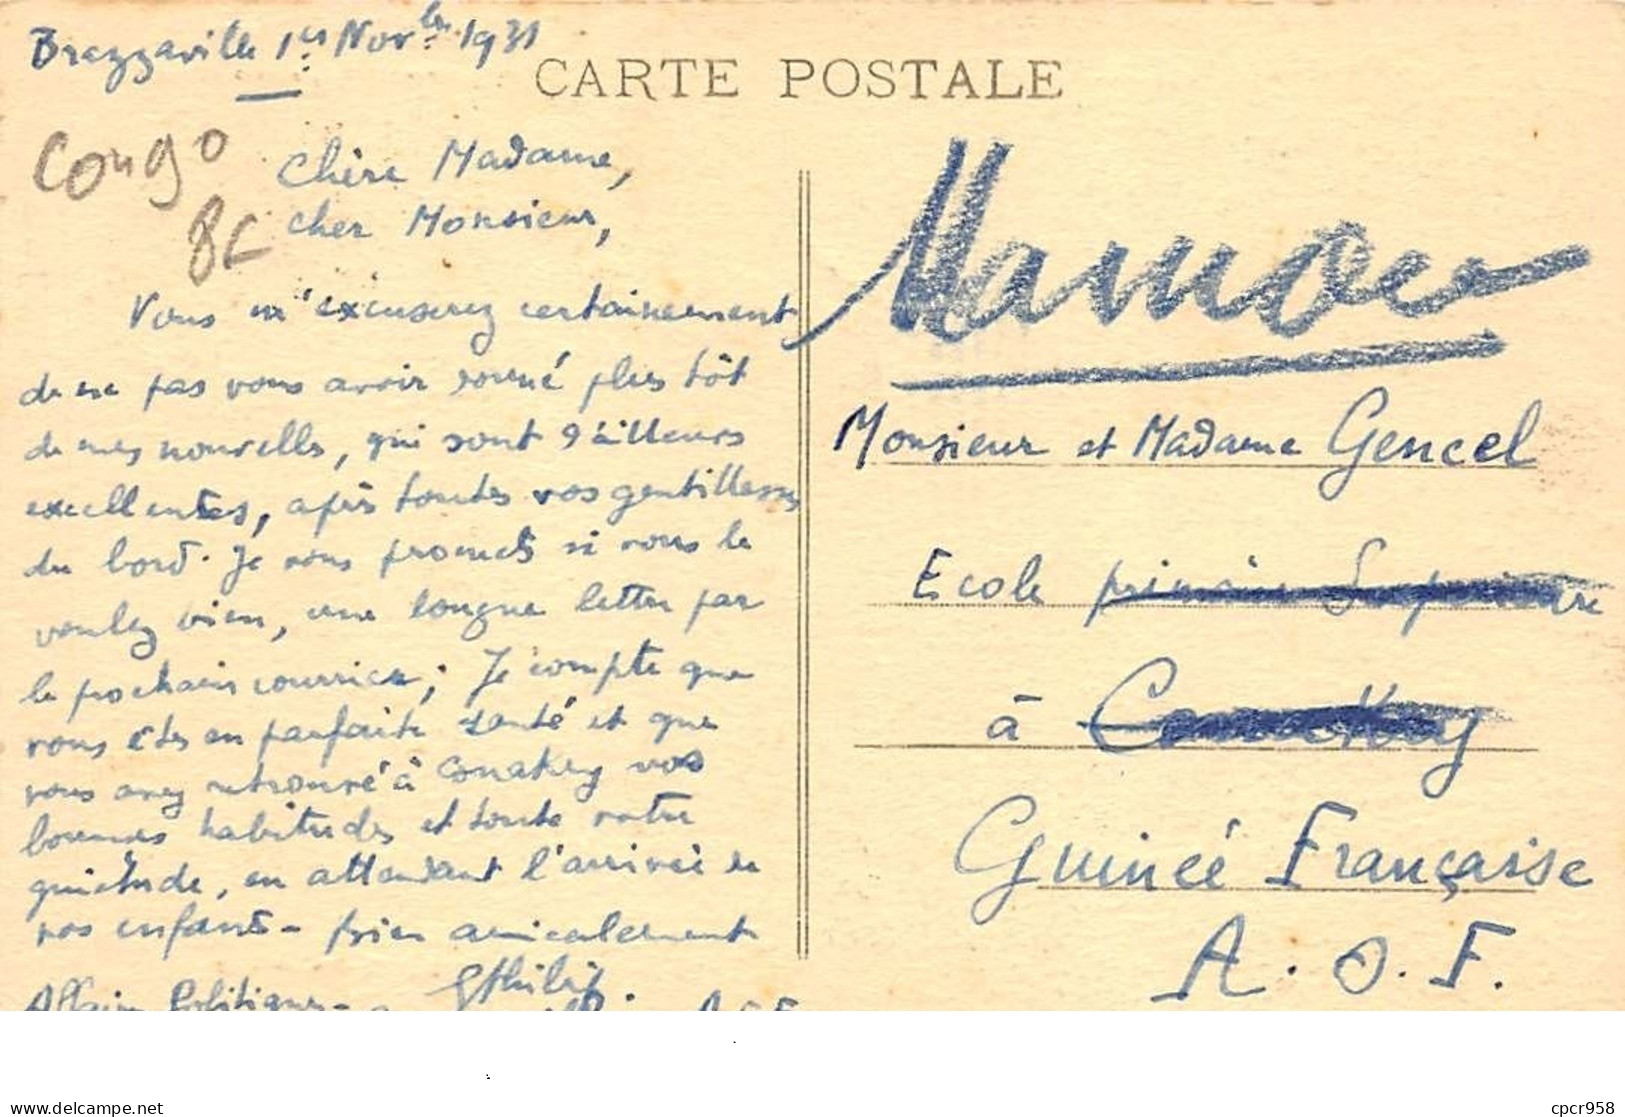 Brazzaville 1er Novbre 1931
CARTE POSTALE
Congo
8€
Chère Madame,
cher Monsieur,
Vous m'excuserez certainement
de ne pas vous avoir donné plus tôt
de mes nouvelles, qui sont d'ailleurs
excellentes, après toutes vos gentillesses
du bord. Je vous promets si vous le
voulez bien, une longue lettre par
le prochain courrier; Je compte que
vous êtes en parfaite santé et que
vous avez retrouvé à Conakry vos
bonnes habitudes et toute votre
quiétude, en attendant l'arrivée de
vos enfants - bien amicalement
Affaires Politiques - A.E.F.
Mamou
Monsieur et Madame Gencel
Ecole primaire Supérieure
à Conackry
Guinée Française
A.O.F.
delcampe.net
cpcr958